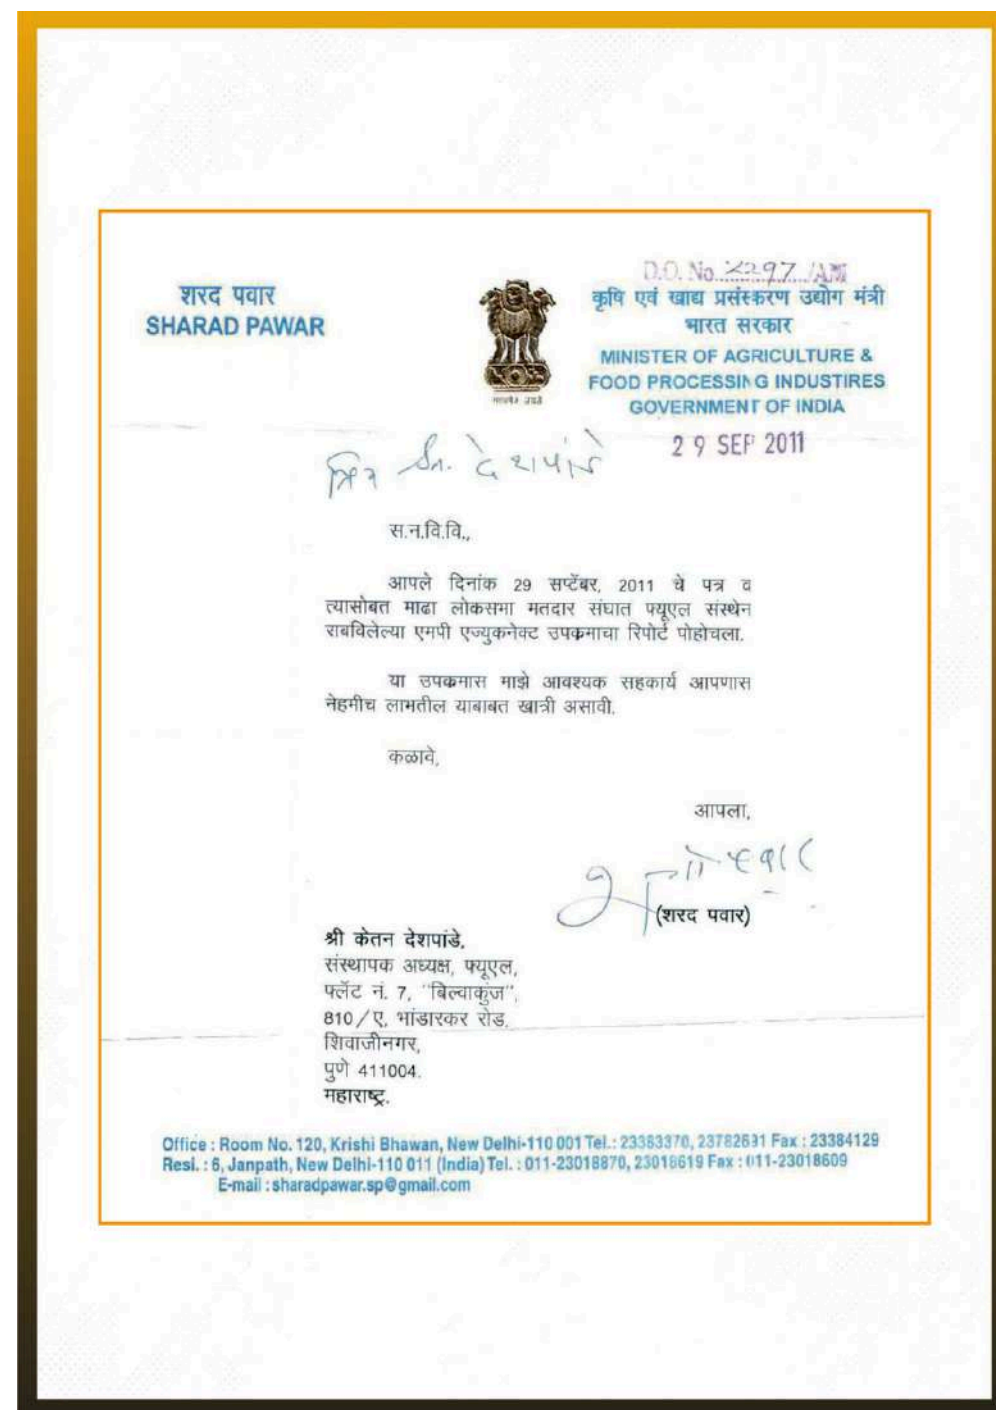 D.O. No. 2297 /AM
शरद पवार
SHARAD PAWAR
सत्यमेव जयते
कृषि एवं खाद्य प्रसंस्करण उद्योग मंत्री
भारत सरकार
MINISTER OF AGRICULTURE &
FOOD PROCESSING INDUSTIRES
GOVERNMENT OF INDIA
29 SEP 2011
प्रिय श्री. देशपांडे
स.न.वि.वि.,
आपले दिनांक 29 सप्टेंबर, 2011 चे पत्र व
त्यासोबत माढा लोकसभा मतदार संघात फ्यूएल संस्थेन
राबविलेल्या एमपी एज्युकनेक्ट उपक्रमाचा रिपोर्ट पोहोचला.
या उपक्रमास माझे आवश्यक सहकार्य आपणास
नेहमीच लाभतील याबाबत खात्री असावी.
कळावे,
आपला,
(शरद पवार)
श्री केतन देशपांडे,
संस्थापक अध्यक्ष, फ्यूएल,
फ्लॅट नं. 7, "बिल्वाकुंज",
810/ए, भांडारकर रोड,
शिवाजीनगर,
पुणे 411004.
महाराष्ट्र.
Office : Room No. 120, Krishi Bhawan, New Delhi-110 001 Tel.: 23383370, 23782691 Fax : 23384129
Resi. : 6, Janpath, New Delhi-110 011 (India) Tel. : 011-23018870, 23018619 Fax : 011-23018609
E-mail : sharadpawar.sp@gmail.com